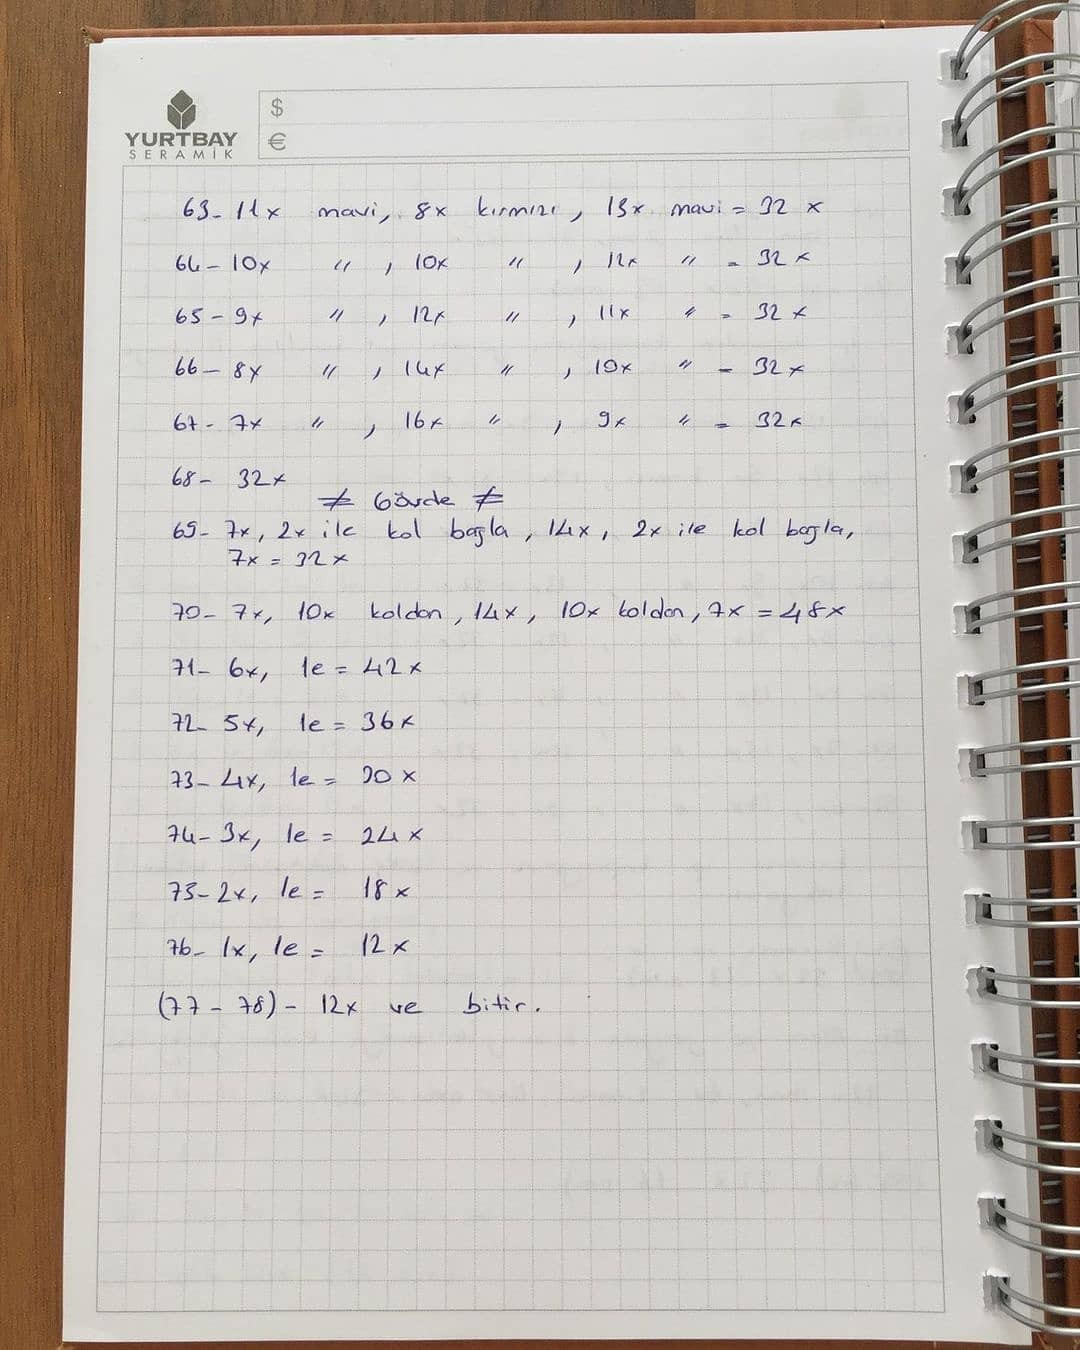 YURTBAY
SERAMİK
$
€
63- 11x mavi, 8x kırmızı, 13x mavi = 32 x
64- 10x " , 10x " , 12x " = 32 x
65- 9x " , 12x " , 11x " = 32 x
66- 8x " , 14x " , 10x " = 32 x
67- 7x " , 16x " , 9x " = 32x
68- 32x
≠ Gövde ≠
69- 7x, 2x ile kol bağla, 14x, 2x ile kol bağla,
7x = 32x
70- 7x, 10x koldan, 14x, 10x koldan, 7x = 48x
71- 6x, 1e = 42x
72- 5x, 1e = 36x
73- 4x, 1e = 30 x
74- 3x, 1e = 24x
75- 2x, 1e = 18x
76- 1x, 1e = 12x
(77 - 78) - 12x ve bitir.